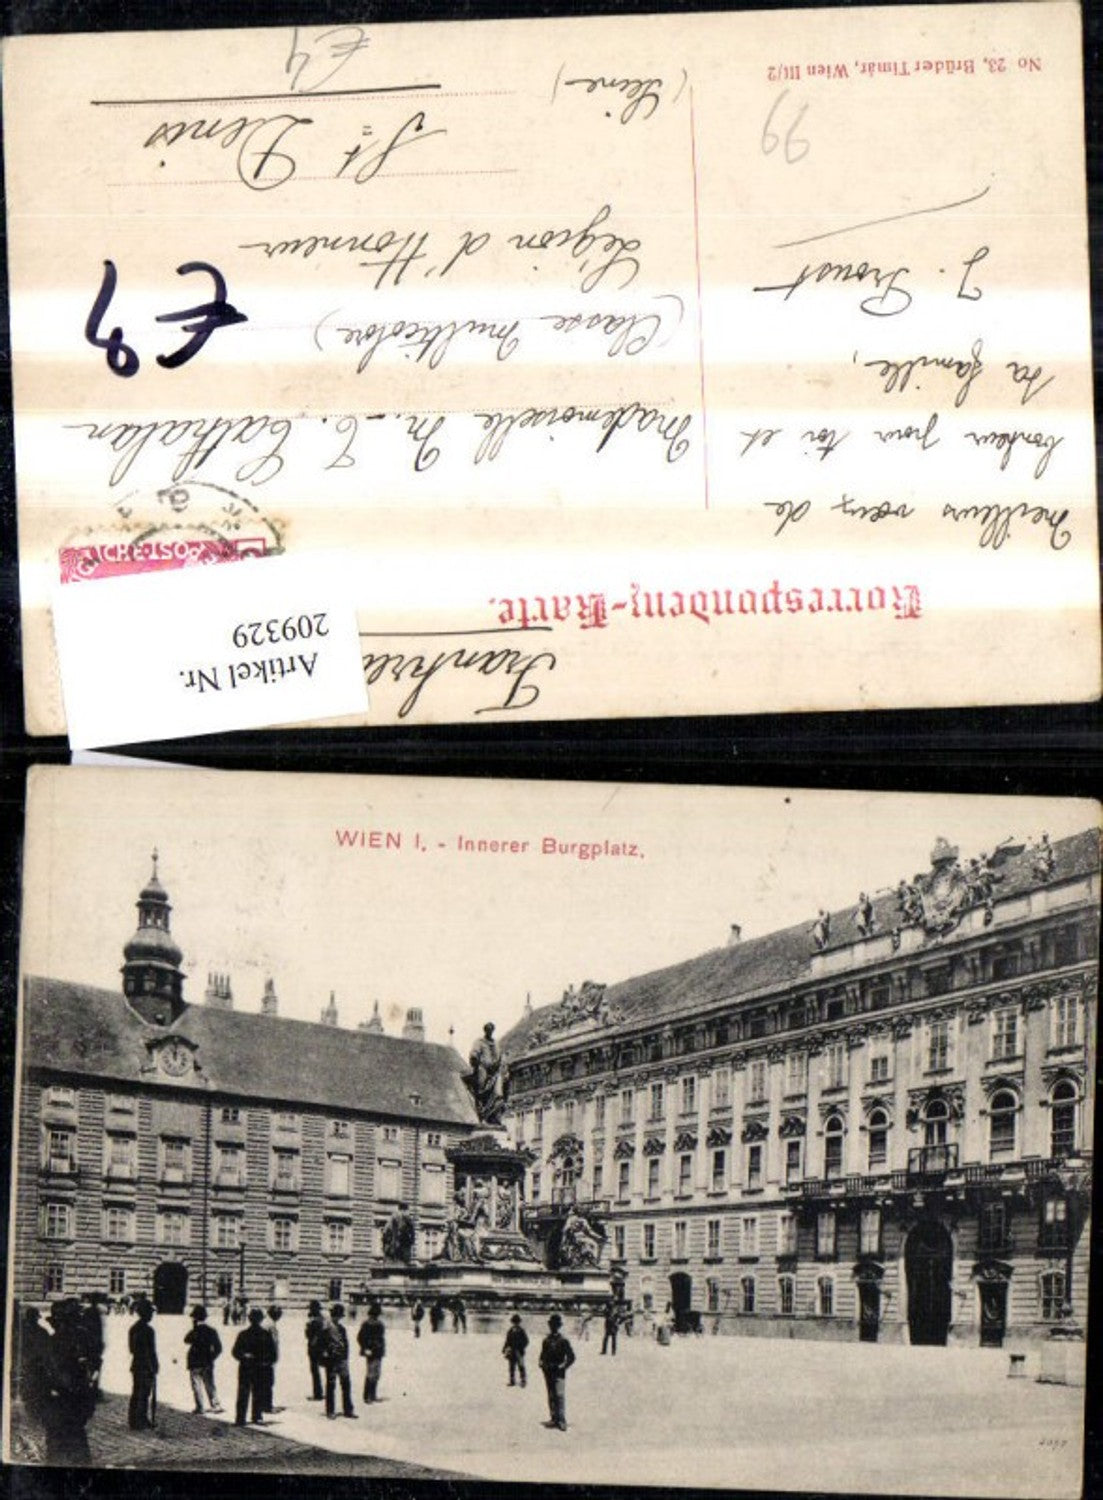 Frankre
Korrespondenz-Karte.
Artikel Nr.
209329
Meilleurs vœux de
bonheur pour toi et
ta famille,
J. Proust
Mademoiselle M.-C. Cathalan
(Classe multicolore)
Légion d'Honneur
St Denis
(Seine)
€8
€4
99
No 23, Brüder Timár, Wien III/2
WIEN I. - Innerer Burgplatz.